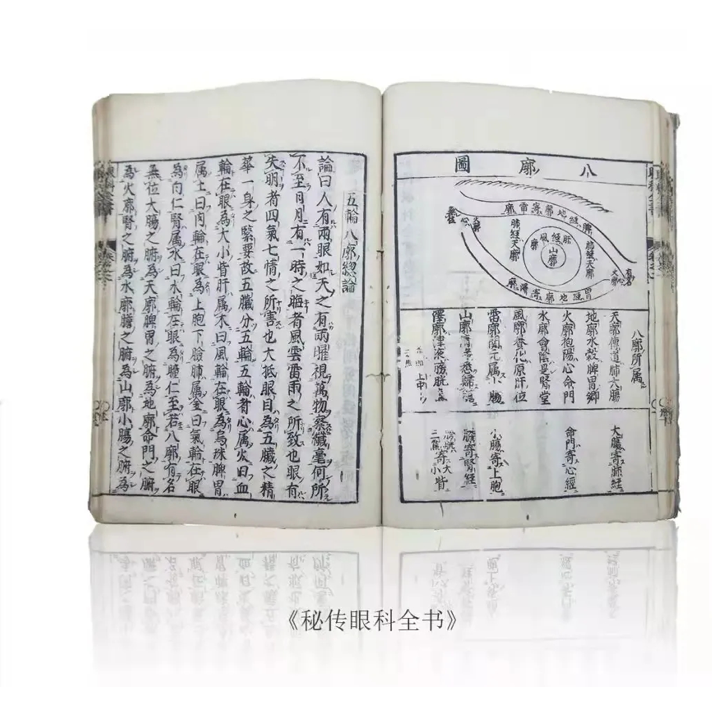 八廓圖
山廓
八廓所属
天廓傳道肺大腸
地廓水穀脾胃鄉
火廓抱陽心命門
水廓會陰是腎堂
風廓養化原肝位
雷廓関元属小腸
山廓
澤廓津液
大腸寄肺經
命門寄心經
寄腎經
小腸寄上胞
五輪八廓總論
論曰人有兩眼如天之有兩曜視萬物察纖毫何所
不至日月有一時之晦者風雲雷雨之所致也眼有
失明者四氣七情之所害也大抵眼目為五臟之精
華一身之緊要故五臟分五輪五輪者心属火曰血
輪在眼為大小眥肝属木曰風輪在眼為烏珠脾胃
属土曰肉輪在眼為上胞下瞼肺属金曰氣輪在眼
為白仁腎属水曰水輪在眼為瞳仁至若八廓有名
無位大腸之腑為天廓脾胃之腑為地廓命門之腑
為火廓腎之腑為水廓膽之腑為山廓小腸之腑為
《秘传眼科全书》